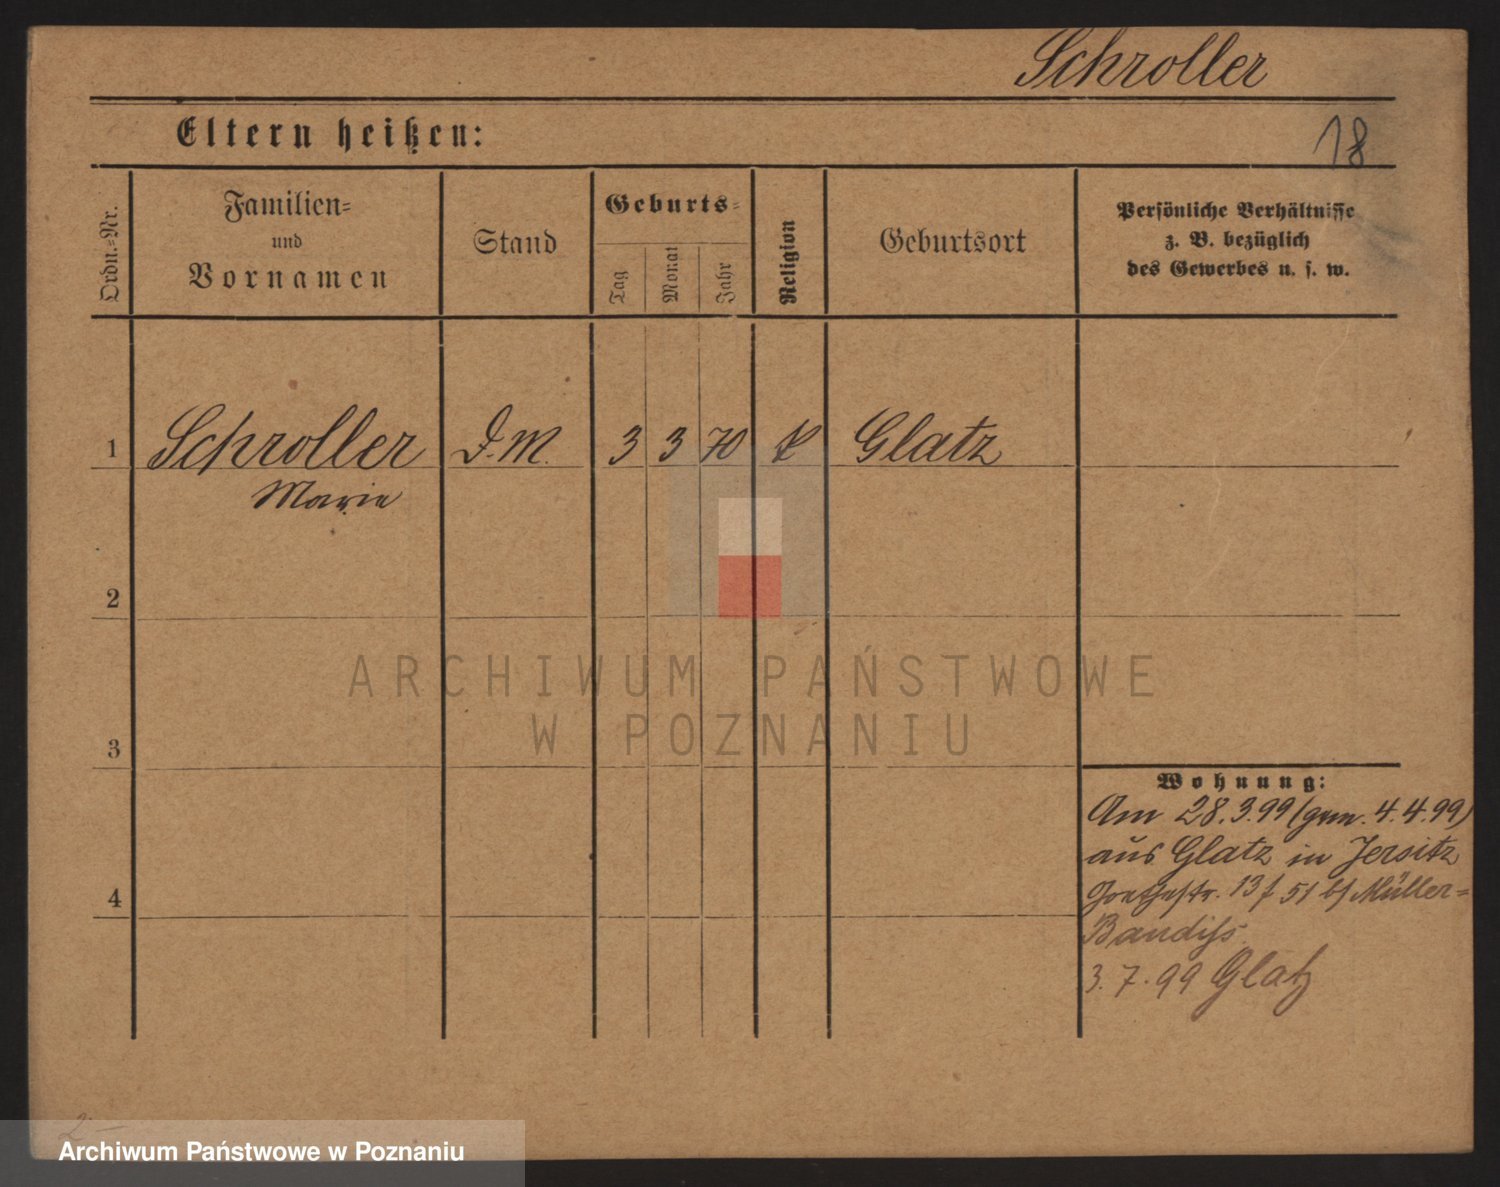 Schroller
Eltern heißen:
18
Ordn.=Nr.
Familien=
und
Vornamen
Stand
Geburts=
Tag
Monat
Jahr
Religion
Geburtsort
Persönliche Verhältnisse
z. B. bezüglich
des Gewerbes u. s. w.
1
Schroller
D. M.
3
3
70
k
Glatz
Marie
2
3
4
ARCHIWUM PAŃSTWOWE
W POZNANIU
Wohnung:
Am 28.3.99 (gem. 4.4.99)
aus Glatz in Jersitz
Goethestr. 13 f 51 b/ Müller=
Bandiss
3.7.99 Glatz
2
Archiwum Państwowe w Poznaniu